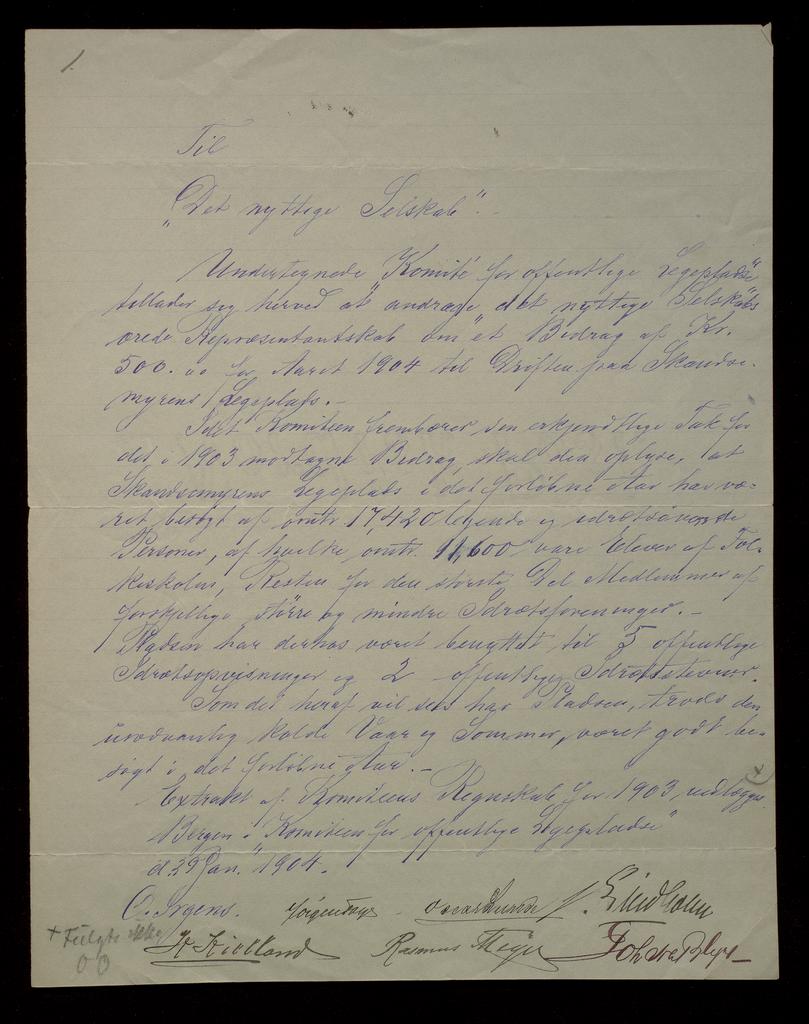 1.
Til
"Det nyttige Selskab".
Undertegnede "Komité for offentlige Legepladse"
tillader sig herved at andrage "det nyttige Selskab"s
ærede Repræsentantskab om et Bidrag af Kr.
500.00 for Aaret 1904 til Driften paa Skandse-
myrens Legeplads.-
Idet Komiteen frembærer sin erkjendtlige Tak for
det i 1903 modtagne Bidrag, skal den oplyse, at
Skandsemyrens Legeplads i det forløbne Aar har væ-
ret besøgt af omtr. 17,420 legende og idrætsøvende
Personer, af hvilke omtr. 11,600 vare Elever af Fol-
keskolen, Resten for den største Del Medlemmer af
forskjellige større og mindre Idrætsforeninger.-
Pladsen har dernæs været benyttet til 5 offentlige
Idrætsopvisninger og 2 offentlige Idrætsstevner.
Som det heraf vil sees har Pladsen, trods den
usædvanlig kolde Vaar og Sommer, været godt be-
søgt i det forløbne Aar.-
Extrakt af Komiteens Regnskab for 1903 vedlægges. x)
Bergen i "Komiteen for offentlige Legepladse"
d 29 Jan. 1904.
O. Irgens. Lindholm
+ Fulgte ikke J. Kielland Rasmus Meyer Joh dca Blyt
OO